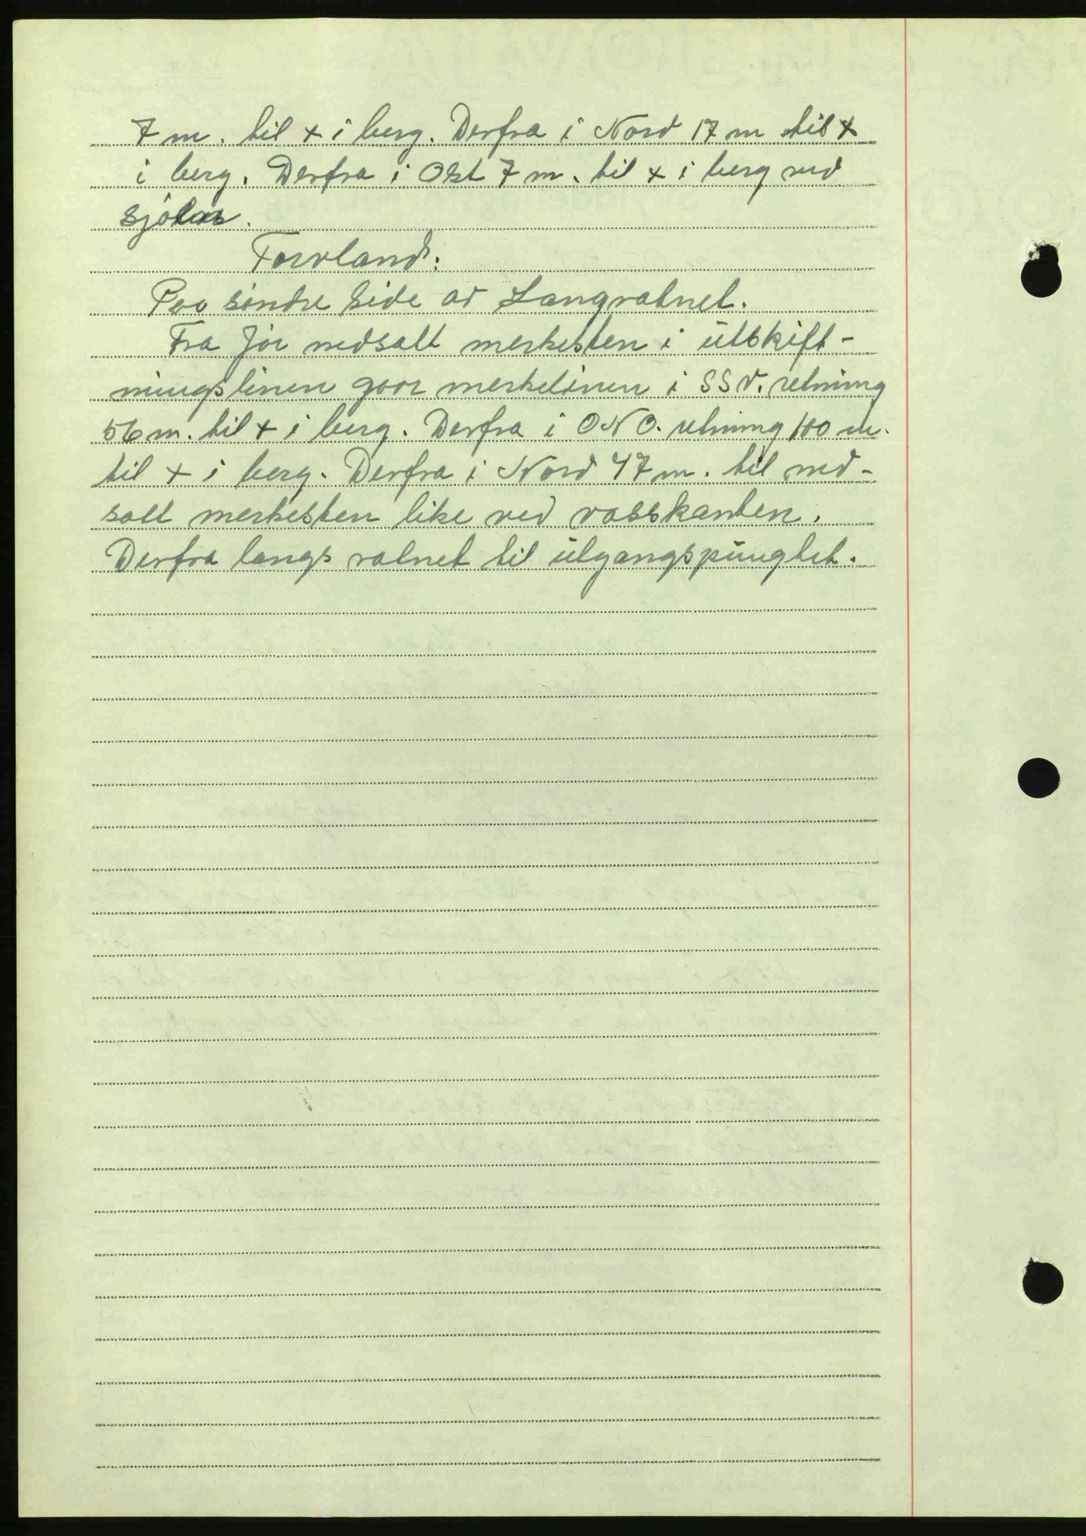 7 m. til + i berg. Derfra i Nord 17 m til +
i berg. Derfra i Ost 7 m. til + i berg ved
sjöen.
Forland:
Paa söndre side av Langvatnet.
Fra för nedsatt merkesten i utskift-
ningslinen gaar merkelinen i SSV. retning
56 m. til + i berg. Derfra i ONO. retning 100 m.
til + i berg. Derfra i Nord 47 m. til ned-
satt merkesten like ved vasskanten.
Derfra langs vatnet til utgangspungtet.